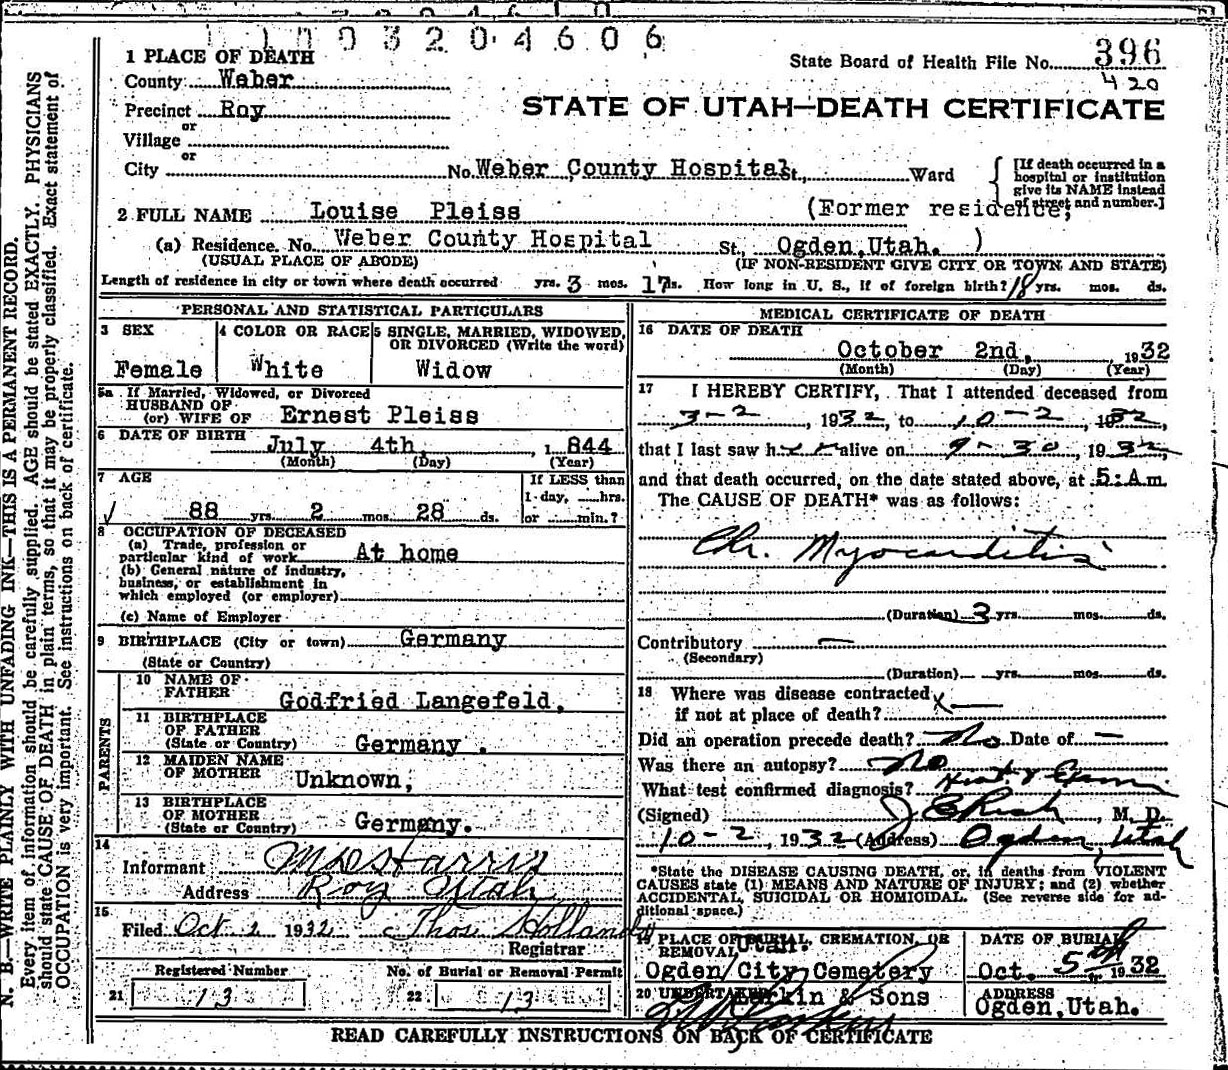 1003204606
1 PLACE OF DEATH
State Board of Health File No. 396
420
County Weber
Precinct Roy
STATE OF UTAH—DEATH CERTIFICATE
or
Village
or
City No. Weber County Hospital St., Ward
[If death occurred in a
hospital or institution
give its NAME instead
of street and number.]
2 FULL NAME Louise Pleiss (Former residence,
(a) Residence. No. Weber County Hospital St., Ogden, Utah. )
(USUAL PLACE OF ABODE) (IF NON-RESIDENT GIVE CITY OR TOWN AND STATE)
Length of residence in city or town where death occurred yrs. 3 mos. 17 ds. How long in U. S., if of foreign birth? 18 yrs. mos. ds.
PERSONAL AND STATISTICAL PARTICULARS
3 SEX
Female
4 COLOR OR RACE
White
5 SINGLE, MARRIED, WIDOWED,
OR DIVORCED (Write the word)
Widow
5a If Married, Widowed, or Divorced
HUSBAND OF
(or) WIFE OF Ernest Pleiss
6 DATE OF BIRTH July 4th, 1844
(Month) (Day) (Year)
7 AGE
88 yrs. 2 mos. 28 ds.
If LESS than
1 day, hrs.
or min.?
8 OCCUPATION OF DECEASED
(a) Trade, profession or
particular kind of work At home
(b) General nature of industry,
business, or establishment in
which employed (or employer)
(c) Name of Employer
9 BIRTHPLACE (City or town) Germany
(State or Country)
PARENTS
10 NAME OF
FATHER Godfried Langefeld,
11 BIRTHPLACE
OF FATHER
(State or Country) Germany .
12 MAIDEN NAME
OF MOTHER Unknown,
13 BIRTHPLACE
OF MOTHER
(State or Country) Germany.
14
Informant M D Harris
Address Roy Utah
15
Filed Oct 2 1932 Thos Holland
Registrar
Registered Number
21 13
No. of Burial or Removal Permit
22 13
MEDICAL CERTIFICATE OF DEATH
16 DATE OF DEATH
October 2nd, 1932
(Month) (Day) (Year)
17 I HEREBY CERTIFY, That I attended deceased from
3-2, 1932, to 10-2, 1932,
that I last saw her alive on 9-30, 1932,
and that death occurred, on the date stated above, at 5:A.m
The CAUSE OF DEATH* was as follows:
Chr. Myocarditis
(Duration) 3 yrs. mos. ds.
Contributory —
(Secondary)
(Duration) yrs. mos. ds.
18 Where was disease contracted
if not at place of death? x—
Did an operation precede death? No Date of —
Was there an autopsy? No
What test confirmed diagnosis?
(Signed) J E Rich, M. D.
10-2, 1932 (Address) Ogden, Utah
*State the DISEASE CAUSING DEATH, or, in deaths from VIOLENT
CAUSES state (1) MEANS AND NATURE OF INJURY; and (2) whether
ACCIDENTAL, SUICIDAL OR HOMICIDAL. (See reverse side for ad-
ditional space.)
19 PLACE OF BURIAL, CREMATION, OR
REMOVAL Utah.
Ogden City Cemetery
DATE OF BURIAL
Oct. 5th 1932
20 UNDERTAKER Larkin & Sons
ADDRESS
Ogden, Utah.
READ CAREFULLY INSTRUCTIONS ON BACK OF CERTIFICATE
N. B.—WRITE PLAINLY WITH UNFADING INK—THIS IS A PERMANENT RECORD.
Every item of information should be carefully supplied. AGE should be stated EXACTLY. PHYSICIANS
should state CAUSE OF DEATH in plain terms, so that it may be properly classified. Exact statement of
OCCUPATION is very important. See instructions on back of certificate.